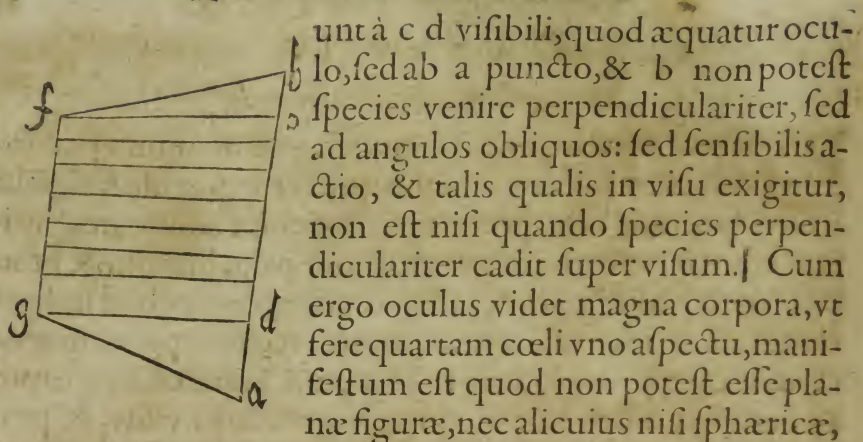 unt à c d viſibili, quod æquatur ocu-
lo, ſed ab a puncto, & b non poteſt
ſpecies venire perpendiculariter, ſed
ad angulos obliquos: ſed ſenſibilis a-
ctio, & talis qualis in viſu exigitur,
non eſt niſi quando ſpecies perpen-
diculariter cadit ſuper viſum. Cum
ergo oculus videt magna corpora, vt
fere quartam cœli vno aſpectu, mani-
feſtum eſt quod non poteſt eſſe pla-
næ figuræ, nec alicuius niſi ſphæricæ,
f
b
c
g
d
a